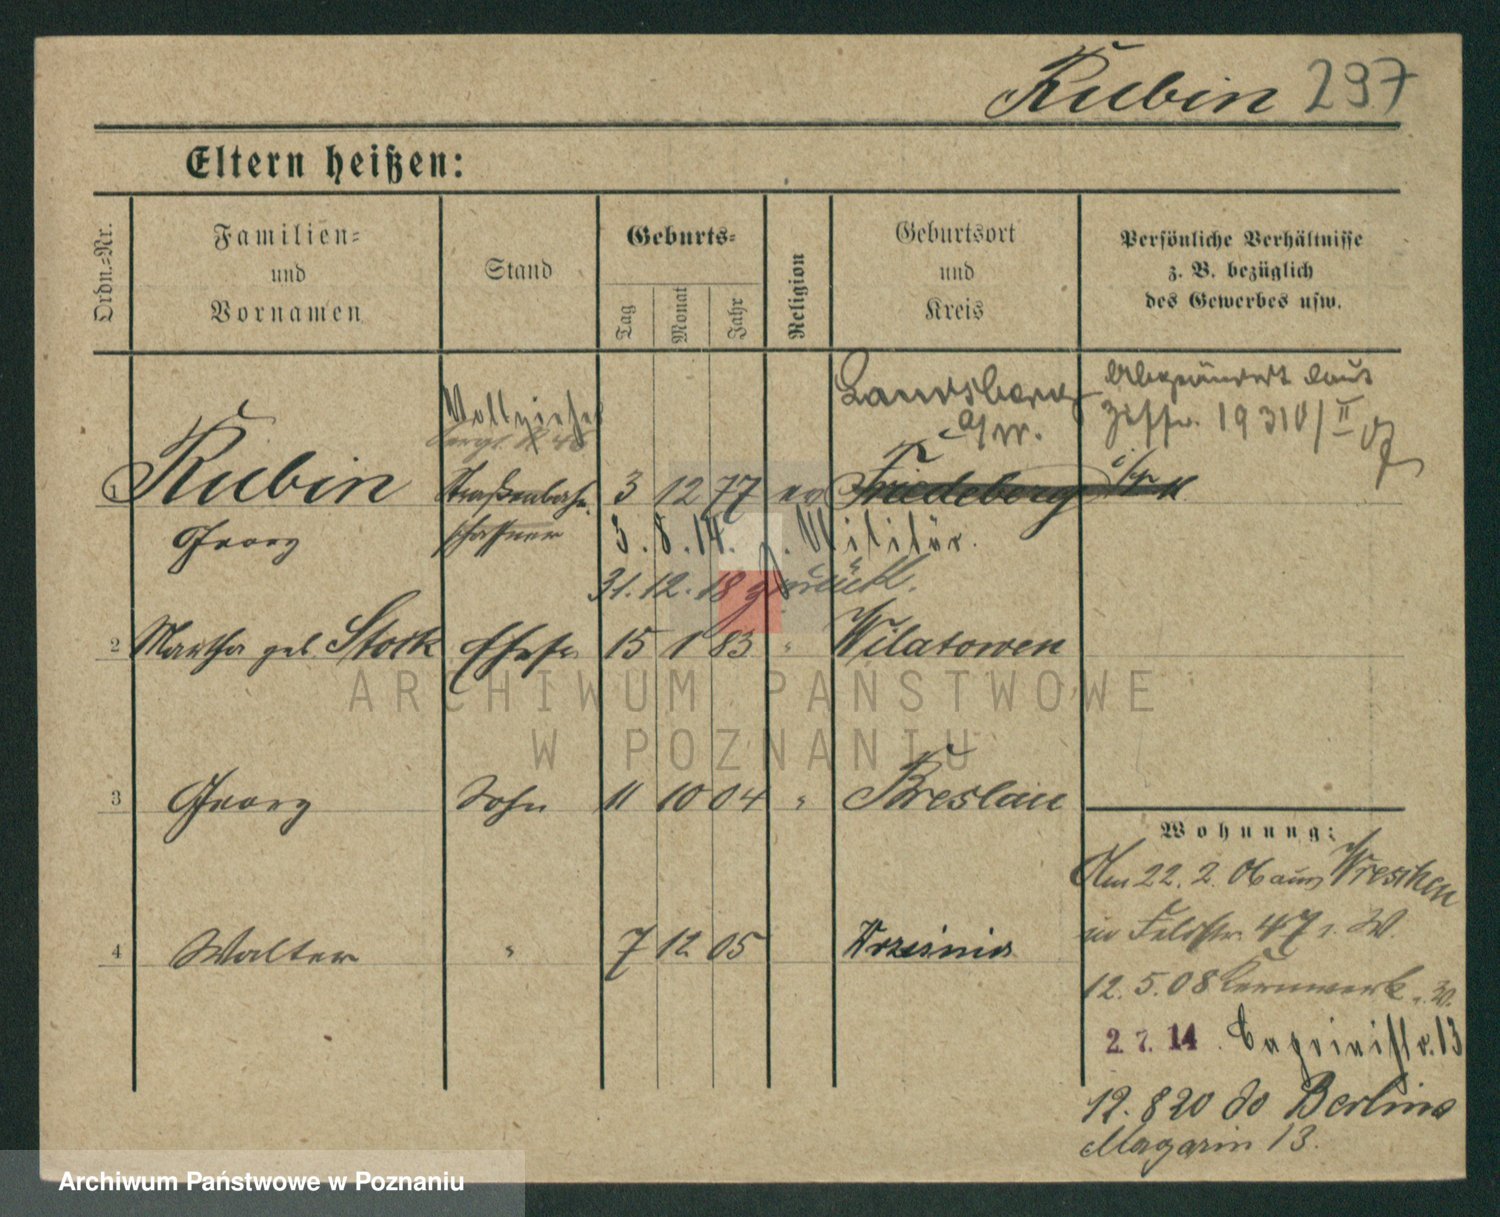 Rubin 297
Eltern heißen:
Ordn.-Nr.
Familien-
und
Vornamen
Stand
Geburts-
Tag
Monat
Jahr
Religion
Geburtsort
und
Kreis
Persönliche Verhältnisse
z. B. bezüglich
des Gewerbes usw.
Landsberg
a/W.
Abgeändert laut
19310/II 07
Vollzieher
1 Rubin Straßenbahn- 3 12 77 ev Friedeberg
Georg schaffner
3. 8. 14. z. Militär.
31. 12. 18 zurück.
2 Martha geb. Stork Ehefr 15 1 83 " Wilatowen
3 Georg Sohn 11 10 04 " Breslau
4 Walter " 7 12 05 Września
Wohnung:
Am 22. 2. 06 aus Wreschen
Feldstr. 47 b. W.
12. 5. 08 Kernwerk b. W.
2. 7. 14.
12. 8 20 do Berlina
Magazin 13.
ARCHIWUM PAŃSTWOWE
W POZNANIU
Archiwum Państwowe w Poznaniu